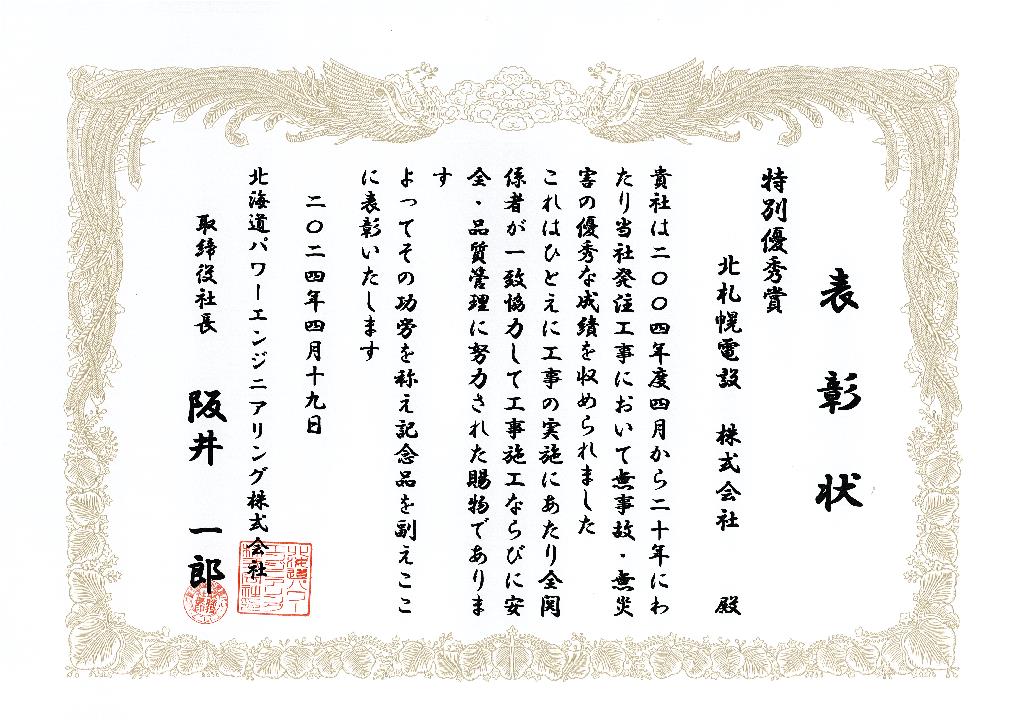 表彰状
特別優秀賞
北札幌電設 株式会社 殿
貴社は二〇〇四年度四月から二十年にわ
たり当社発注工事において無事故・無災
害の優秀な成績を収められました
これはひとえに工事の実施にあたり全関
係者が一致協力して工事施工ならびに安
全・品質管理に努力された賜物でありま
す
よってその功労を称え記念品を副えここ
に表彰いたします
二〇二四年四月十九日
北海道パワーエンジニアリング株式会社
取締役社長 阪井 一郎